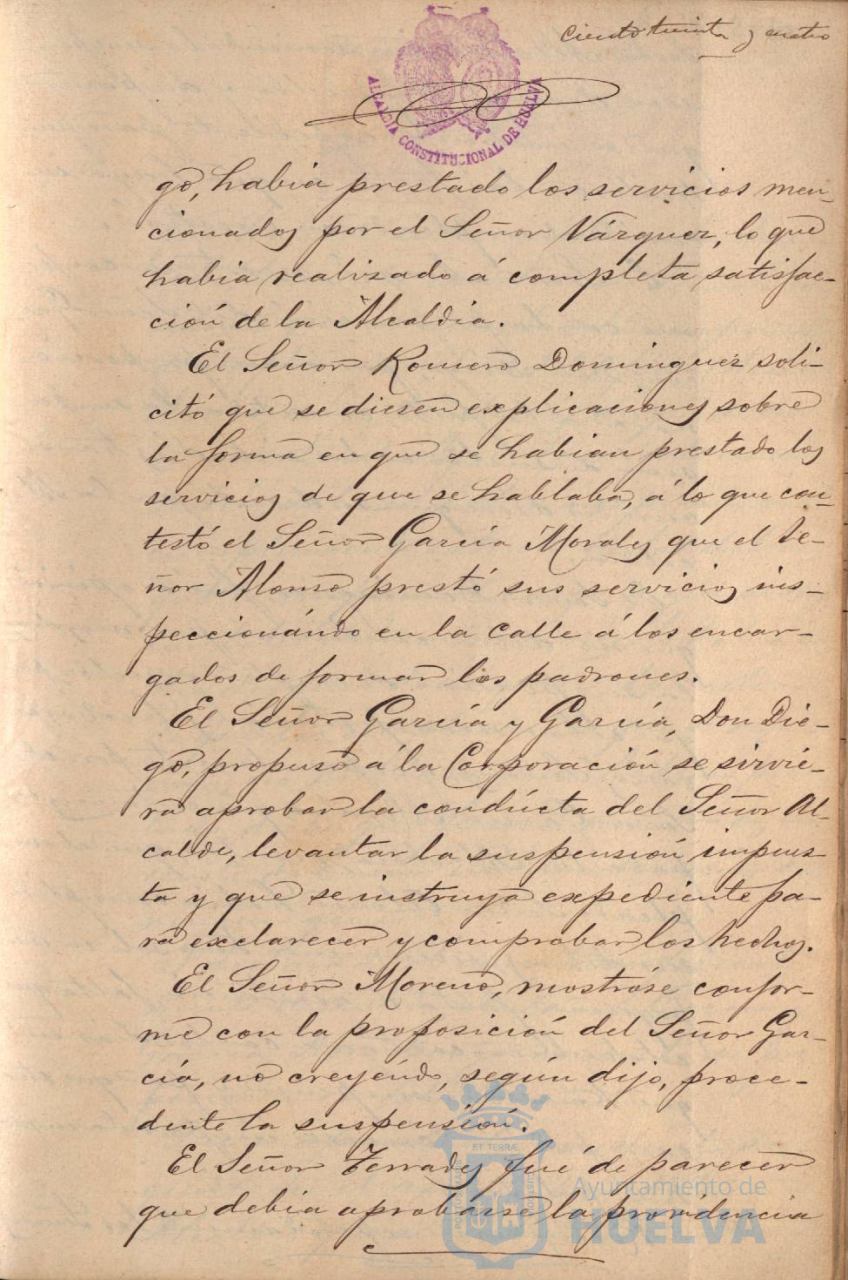 Ciento treinta y cuatro
ALCALDIA CONSTITUCIONAL DE HUELVA
go, habia prestado los servicios men-
cionados por el Señor Vázquez, lo que
habia realizado á completa satisfac-
ción de la Alcaldia.
El Señor Romero Dominguez soli-
citó que se diesen explicaciones sobre
la forma en que se habian prestado los
servicios de que se hablaba, á lo que con-
testó el Señor García Morales que el Se-
ñor Alonso prestó sus servicios ins-
peccionándo en la calle á los encar-
gados de formar los padrones.
El Señor García y García, Don Die-
go, propuso á la Corporación se sirvie-
ra aprobar la condúcta del Señor Al-
calde, levantar la suspensión impues-
ta y que se instruya expediente pa-
ra exclarecer y comprobar los hechos.
El Señor Moreno, mostróse confor-
me con la proposición del Señor Gar-
cía, no creyéndo, según dijo, proce-
dente la suspensión.
El Señor Terrades fué de parecer
que debia aprobarse la providencia
Ayuntamiento de
HUELVA